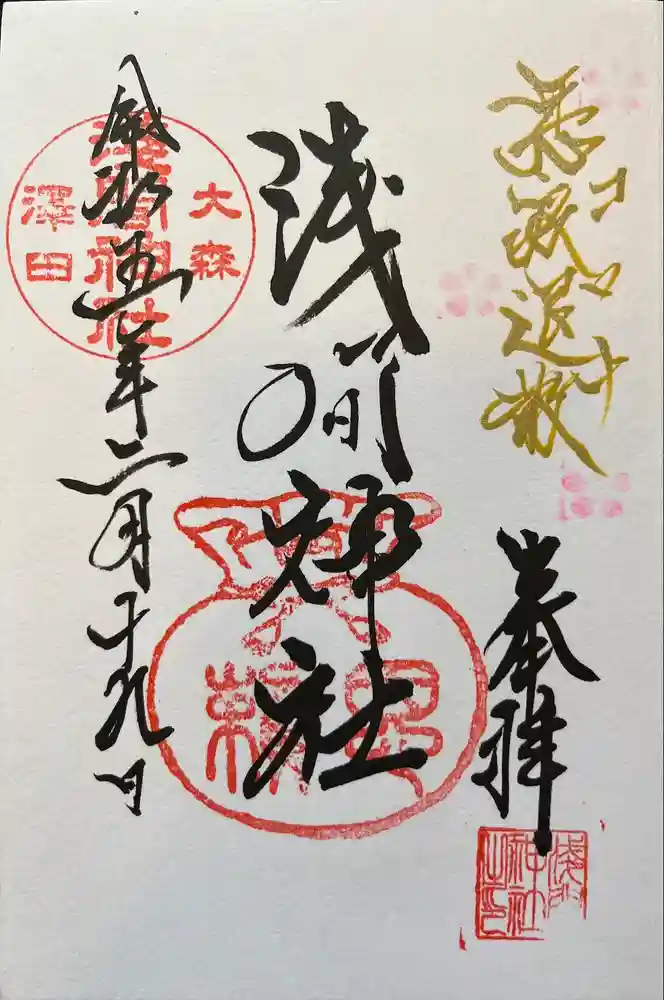 コロナ
悪疫退散
奉拝
浅間神社之印
浅間神社
大森
淺間神社
澤田
令和五年二月十九日